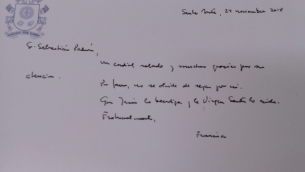 Santa Marta, 29 noviembre 2018
S. Sebastián
un cordial saludo y muchas gracias por su
atención.
Por favor, no se olvide de rezar por mí.
Que Jesús lo bendiga y la Virgen Santa lo cuide.
Fraternalmente,
Francisco